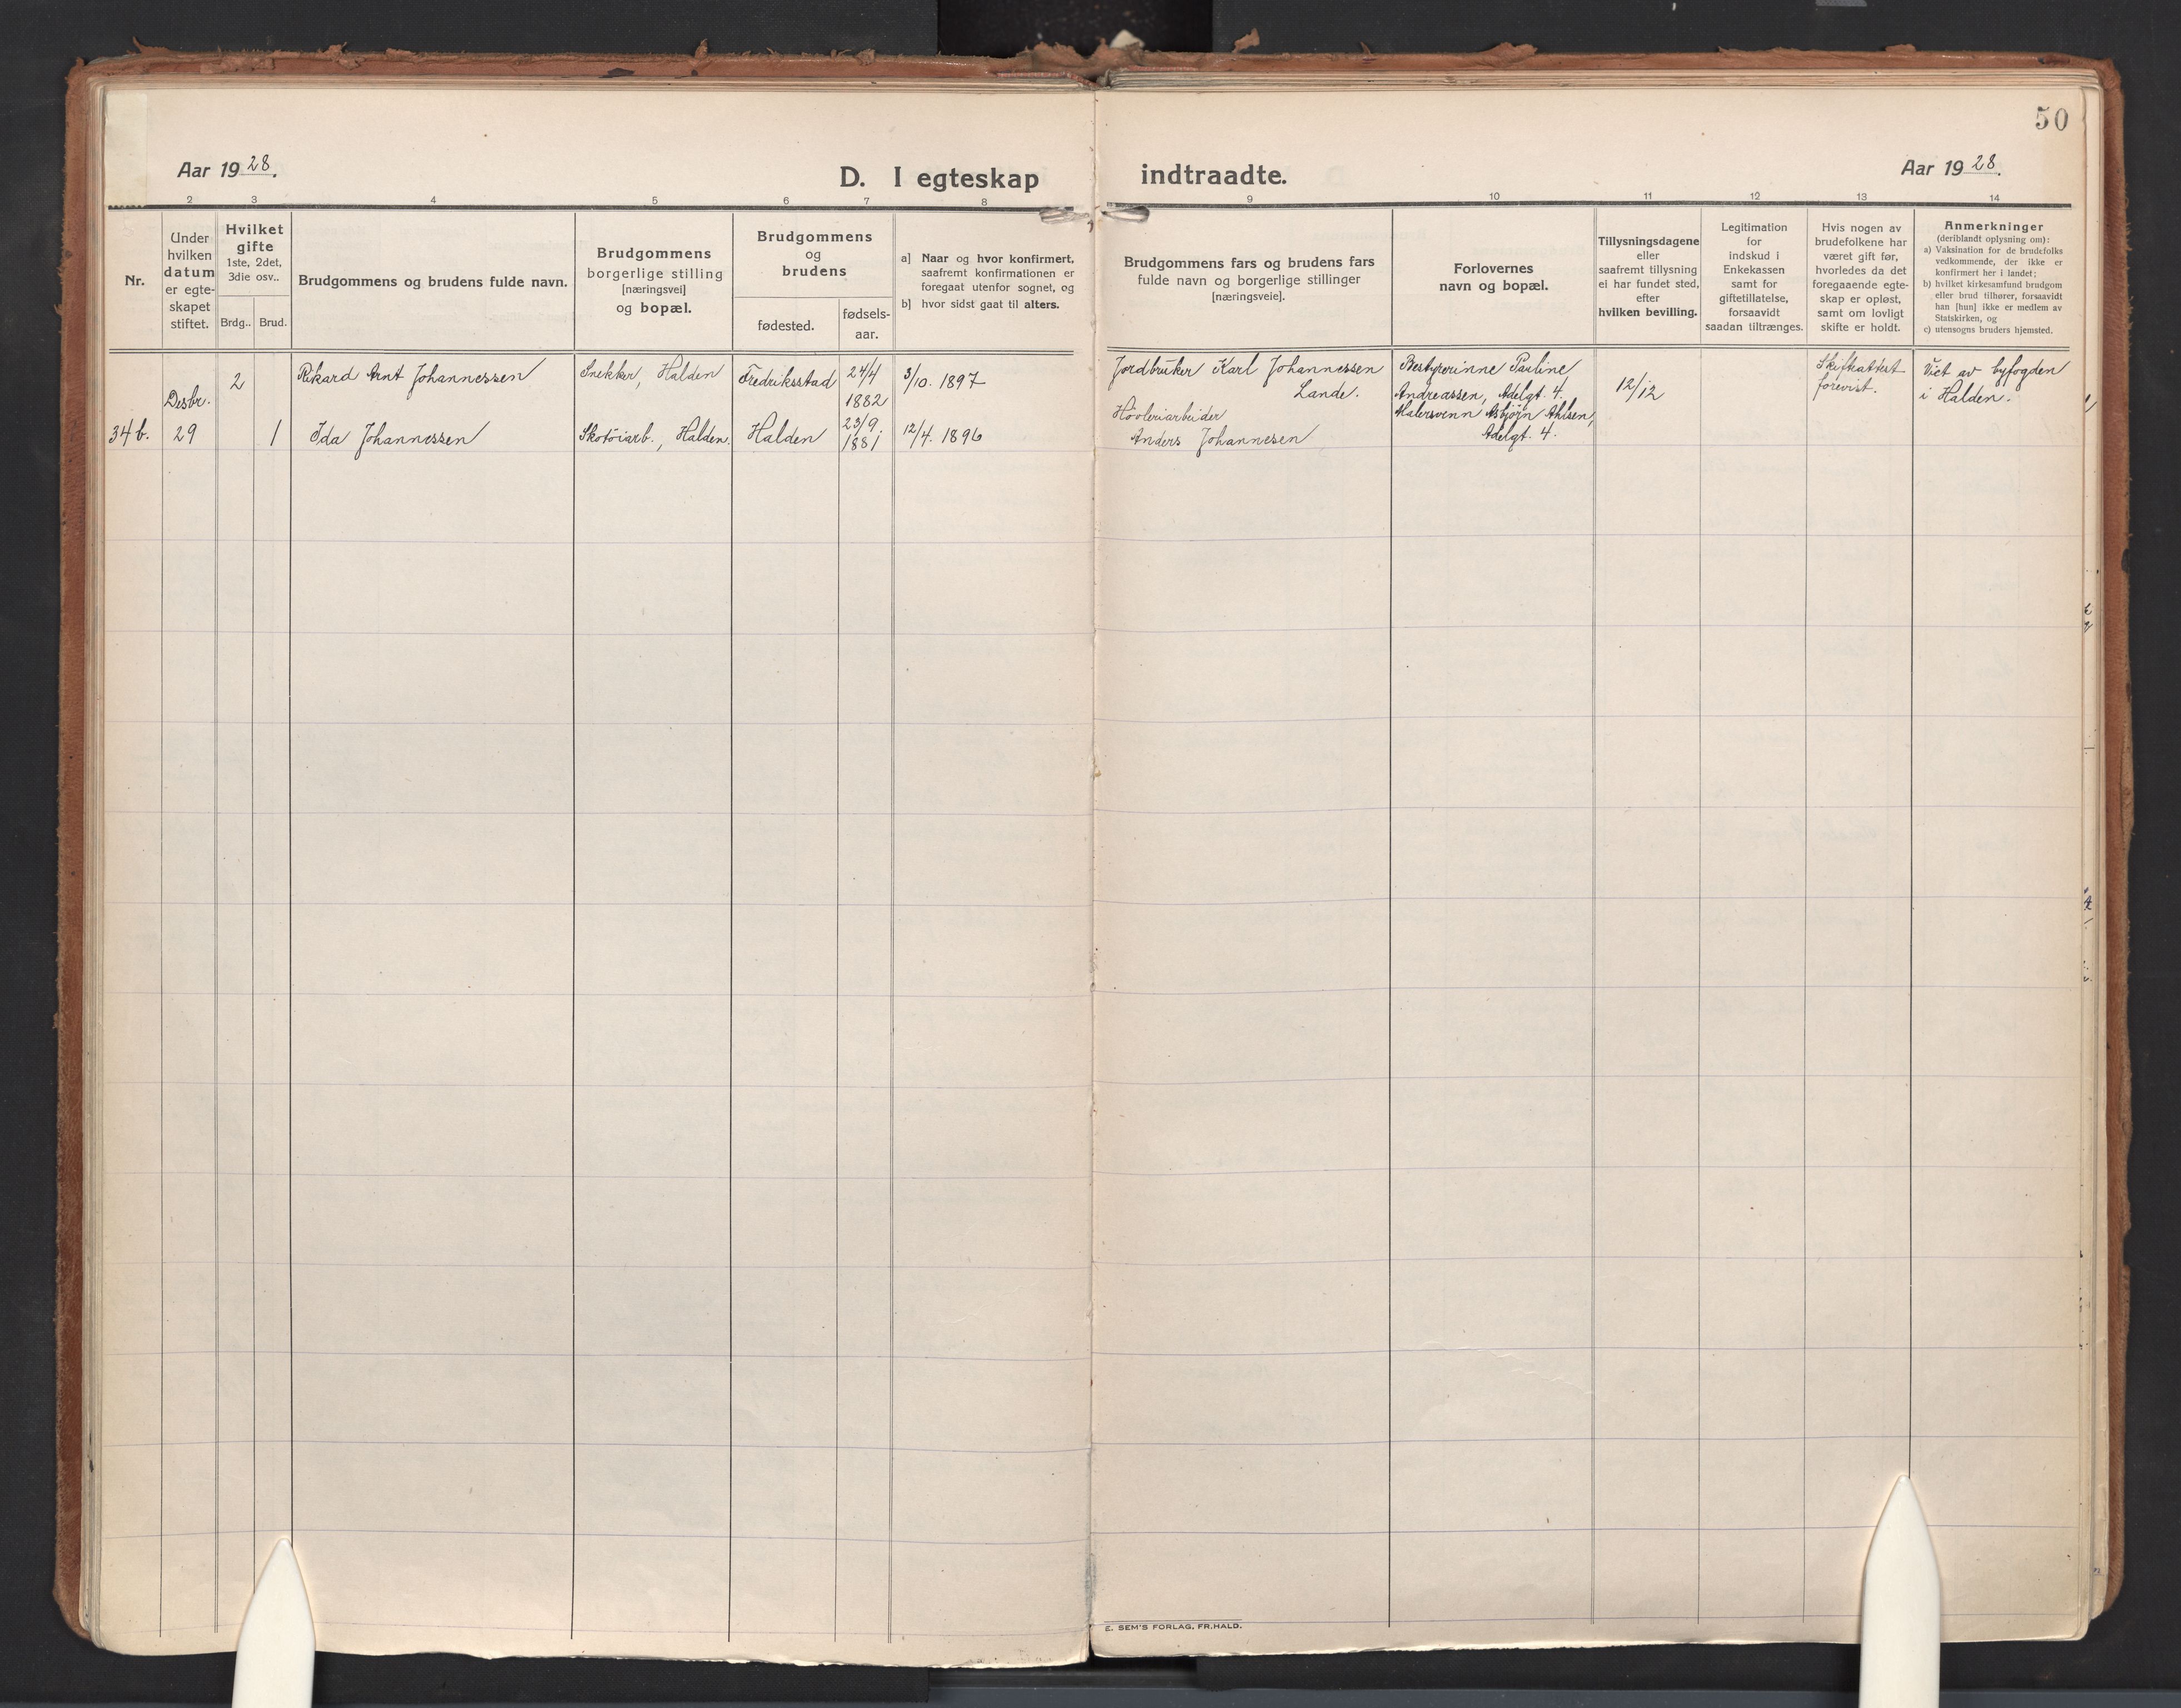 50
Aar 1928.
D. I egteskap indtraadte.
Aar 1928.
2 3 4 5 6 7 8 9 10 11 12 13 14
Nr.
Under
hvilken
datum
er egte-
skapet
stiftet.
Hvilket
gifte
1ste, 2det,
3die osv..
Brdg.. Brud.
Brudgommens og brudens fulde navn.
Brudgommens
borgerlige stilling
[næringsvei]
og bopæl.
Brudgommens
og
brudens
fødested.
fødsels-
aar.
a] Naar og hvor konfirmert,
saafremt konfirmationen er
foregaat utenfor sognet, og
b] hvor sidst gaat til alters.
Brudgommens fars og brudens fars
fulde navn og borgerlige stillinger
[næringsveie].
Forlovernes
navn og bopæl.
Tillysningsdagene
eller
saafremt tillysning
ei har fundet sted,
efter
hvilken bevilling.
Legitimation
for
indskud i
Enkekassen
samt for
giftetillatelse,
forsaavidt
saadan tiltrænges.
Hvis nogen av
brudefolkene har
været gift før,
hvorledes da det
foregaaende egte-
skap er opløst,
samt om lovligt
skifte er holdt.
Anmerkninger
(deriblandt oplysning om):
a) Vaksination for de brudefolks
vedkommende, der ikke er
konfirmert her i landet;
b) hvilket kirkesamfund brudgom
eller brud tilhører, forsaavidt
han [hun] ikke er medlem av
Statskirken, og
c) utensogns bruders hjemsted.
34 b.
Desbr.
29
2
1
Rikard Arnt Johannessen
Ida Johannessen
Snekker, Halden
Skotöiarb., Halden.
Fredriksstad
Halden
24/4
1882
23/9.
1881
3/10. 1897
12/4. 1896
Jordbruker Karl Johannessen
Lande.
Hövleriarbeider
Anders Johannesen
Bestyrerinne Pauline
Andreassen, Adelgt. 4.
Malersvenn Asbjörn Ahlsen,
Adelgt. 4.
12/12
Skifteattest
forevist.
Viet av byfogden
i Halden.
E. SEM'S FORLAG, FR.HALD.